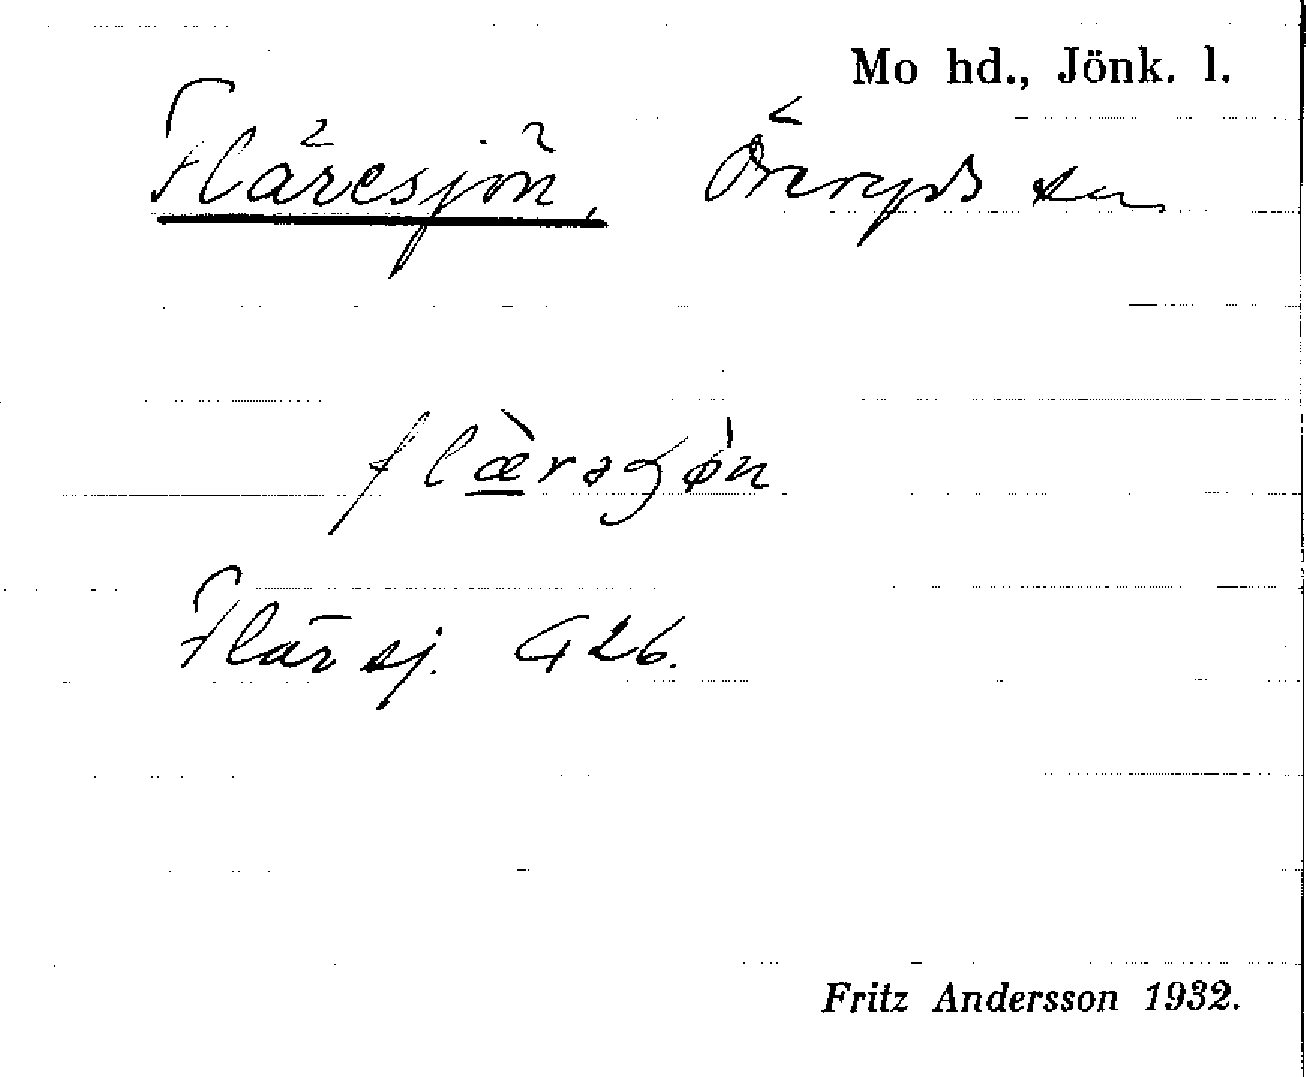 Mo hd., Jönk. l.
Fläresjön, Öreryds sn
flæ̀raʒø̀n
Flärsj. G26.
Fritz Andersson 1932.